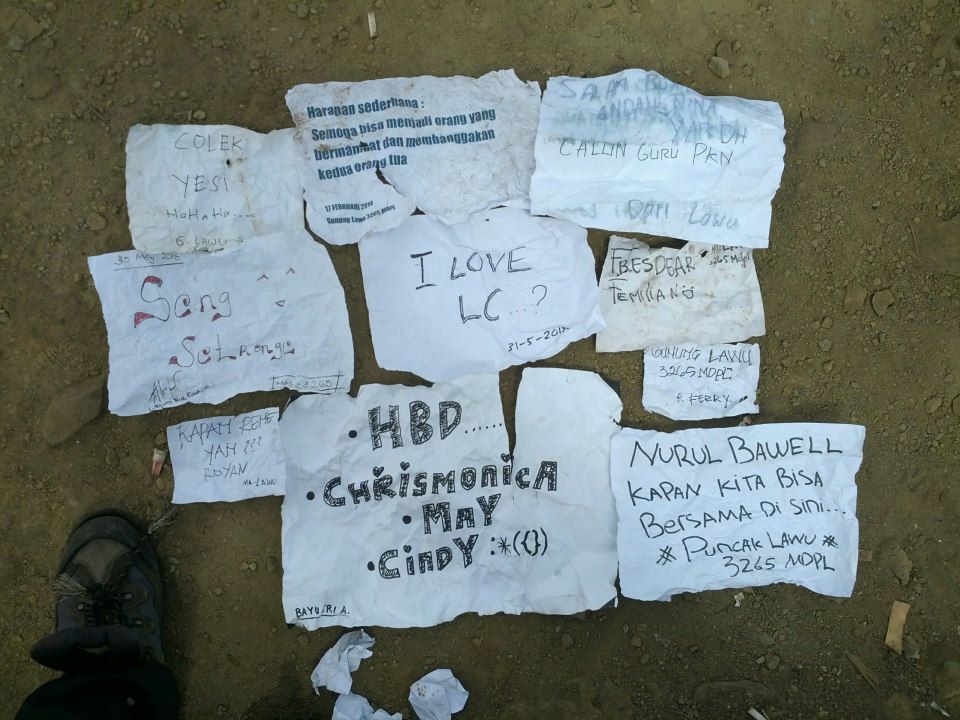 COLEK
YESI
HaHaHa.....
G. LAWU
Harapan sederhana :
Semoga bisa menjadi orang yang
bermanfaat dan membanggakan
kedua orang tua
17 FEBRUARI 2014
Gunung Lawu 3265 MDPL
SALAM
CALON GURU PKN
DARI LAWU
30 May 2015
Song
SeLrenge
3265
I LOVE
LC...?
31-5-201
3265 Mdpl
GUNUNG LAWU
3265 MDPL
P. FERRY.
KAPAN
YAH ???
ROYAN
LAWU
• HBD......
• CHRISMONICA
• MAY
• CINDY :*({})
BAYU
NURUL BAWELL
KAPAN KITA BISA
BERSAMA DI SINI...
# PUNCAK LAWU #
3265 MDPL